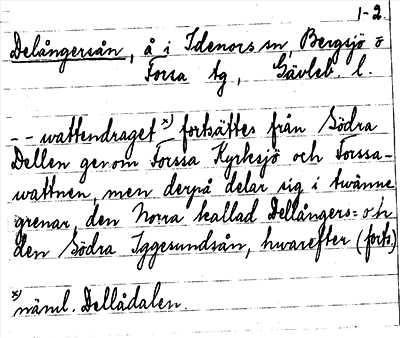 1-2.
Delångersån, å i Idenors sn, Bergsjö o
Forsa tg, Gävleb. l.
-- wattendraget x) fortsättes från Södra
Dellen genom Forssa Kyrksjö och Forssa-
wattnen, men derpå delar sig i twänne
grenar den Norra kallad Dellångers= och
den Södra Iggesundsån, hwarefter (forts.)
x) näml. Dellådalen.